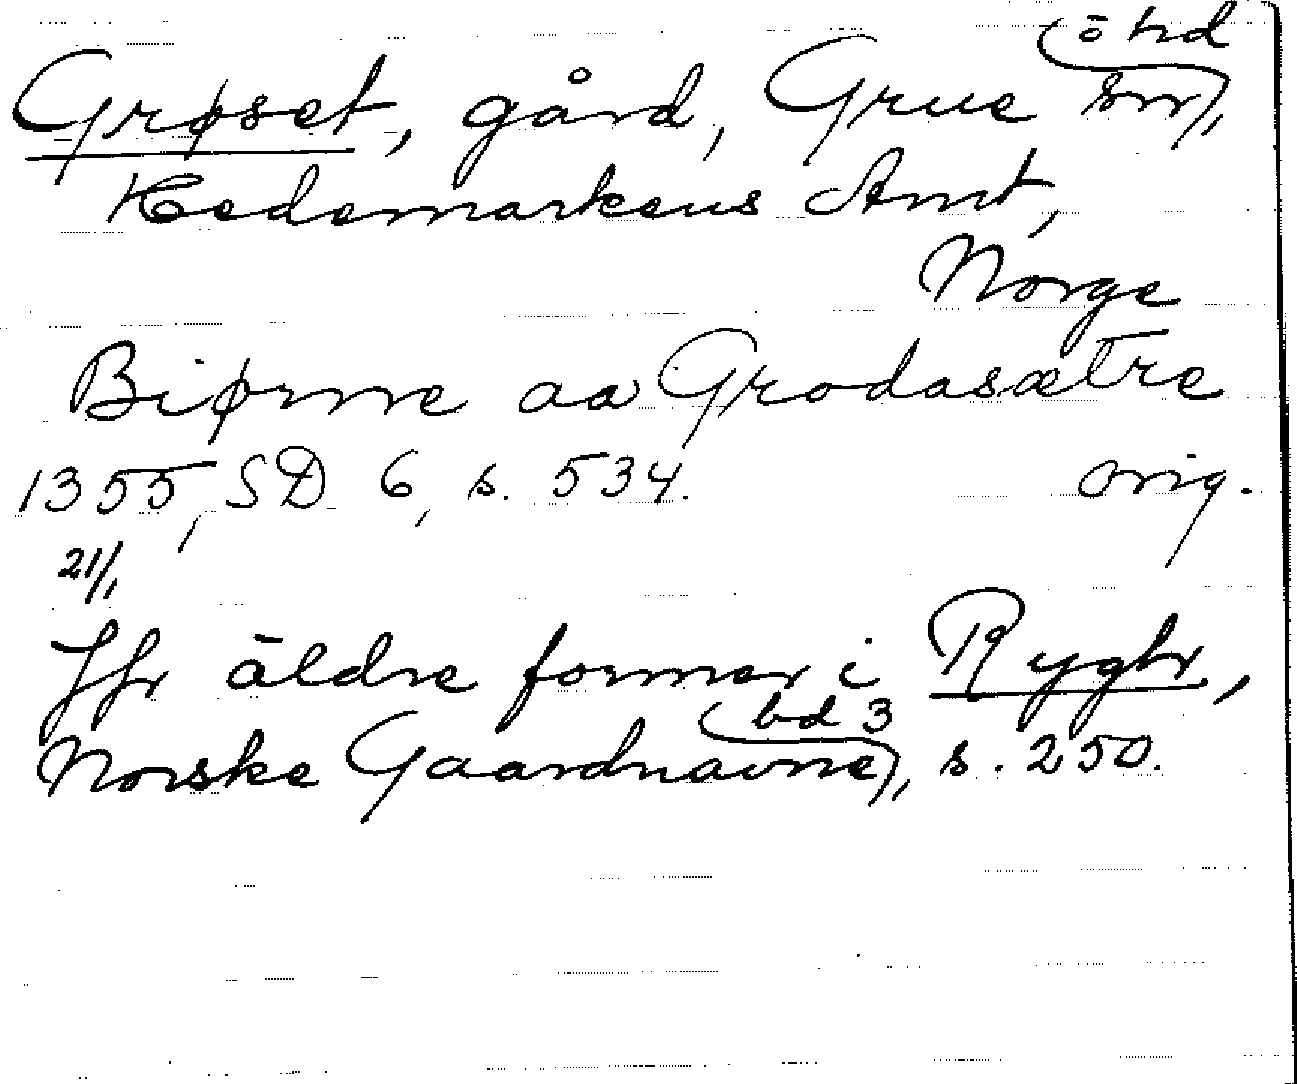 ö hd
Grøset, gård, Grue sn,
Hedemarkens Amt,
Norge
Biørnne aa Grodasætre
1355, SD 6, s. 534. orig.
21/1
Jfr äldre former i Rygh,
bd 3
Norske Gaardnavne, s. 250.